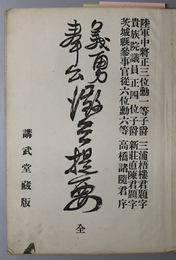 陸軍中將正三位勳一等子爵 三浦梧樓君題字
貴族院議員正四位子爵 新莊直陳君題字
茨城縣參事官從六位勳六等 高橋諸隨君序
義勇
奉公 徵兵提要 全
講武堂藏版